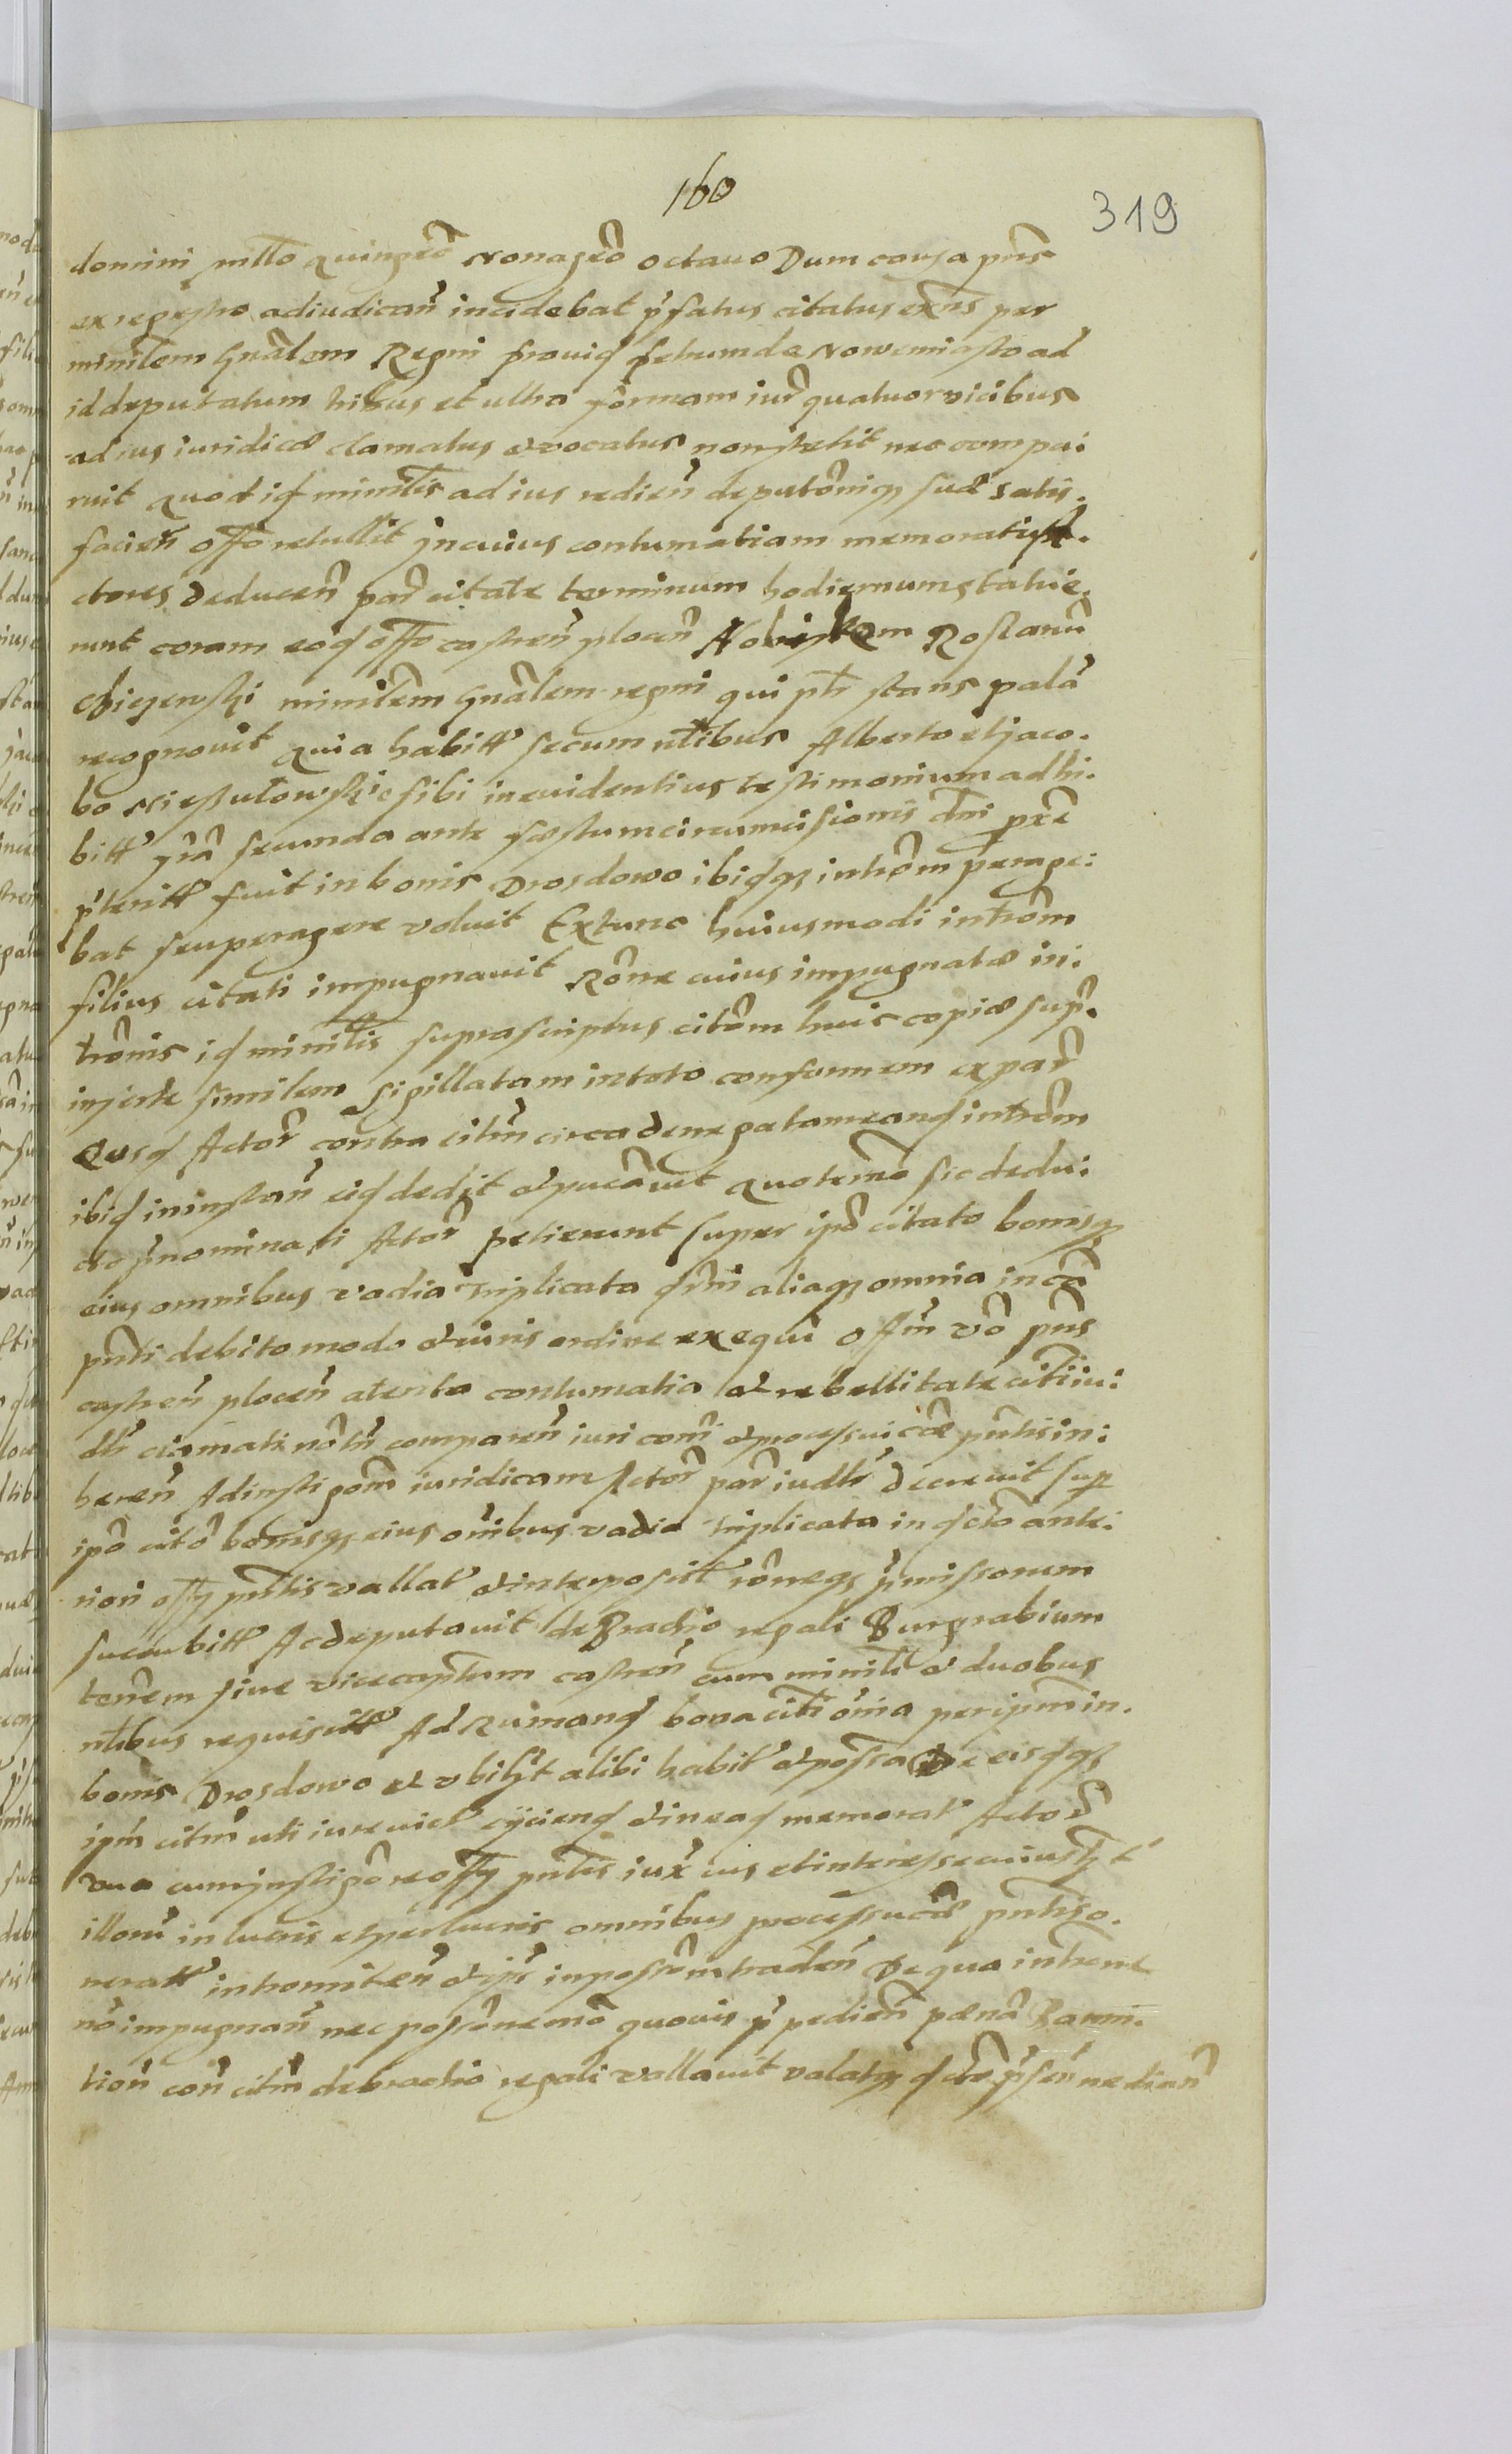 160
319
domini mill̃o quingẽo Nonagẽo octauo Dum causa pñs
ex regestro adiudicañ incidebat p̃fatus citatus exñs per
minĩlem Gnãlem Regni prouid Petrum de Nowemiasto ad
id deputatum tribus et ultra formam iur̃ quatuor vicibus
ad ius iuridicæ clamatus et vocatus non stetit nec compa:
ruit Quod id minĩlis ad ius redieñ deputõniq suæ satis.
facieñ offo retullit Jn cuius contumatiam memorati A.
ctores deduceñ par citatæ terminum hodiernum statue.
runt coram eod offo castreñ ploceñ Nobilem Rostanũ
minĩlem Gnãlem regni qui pt̃r stans palã
recognouit Quia habitt secum nl̃ibus Alberto et Jaco.
bo sibi in euidentius testimonium adhi.
bitt f̃ria secunda ante festum circumcisionis dñi pxẽ
p̃teritt fuit in bonis Drosdowo ibidq intrõm perage:
bat seu peragere voluit Extunc huiusmodi intrõm
filius citati impugnauit Rõne cuius impugnatæ in:
trõnis id minĩlis suprascriptus citõm huic copiæ sup̃.
insertæ similem sigillatam in toto conformem ex par̃
Eosd Actor̃ contra citm̃ circa denegatam eand intrõm
ibid in instan̂ eid dedit et pucãuit Quo termõ sic dedu:
cto p̃nominati Actor̃ petierunt super ipõ citato bonisq
eius omnibus vadia triplicata d̃rni aliaq omnia in cã
pñti debito modo et iuris ordine exequi Offm̃ võ pñs
castreñ ploceñ atenta contumatia et rebellitate citi iu:
dlr̃ clamati nõ tñ compareñ iuri com̃ et processui cæ pñtis in:
hereñ Ad instigõm iuridicam Actor̃ par̃ iudlr̃ decreuit sup
ipõ citõ bonisq eius om̃ibus vadia triplicata in dcto ante:
riori offy pñtis vallat̃ et interposit̃ rõneq p̃missorum
succubitt Ac deputauit de Brachio regali Burgrabium
tenẽm siue vicecaptum castreñ cum minĩli et duobus
nl̃ibus requisitt Ad Rumand bona citi om̃ia per ipm̃ in.
bonis Drosdowo et vbiḷt alibi habit̃ et possa de eisdq
ipm̃ citm̃ uti iure vict̃ eÿciend et in ead memorat̃ Actor̃
vna cum instigõre offy pñtis iux̃ ius et interesse cuiuslt̃
illorũ in lucris et perlucris omnibus processu cæ pñtis o.
neratt̃ intromiteñ et ijs̃ in possõm tradeñ De qua intrõne
nõ impugnañ nec possõne mõ quouis p̃pedieñ pæna Banni.
tioñ coñ citm̃ de brachio regali vallauit valatq dcto p̃señ mediañ